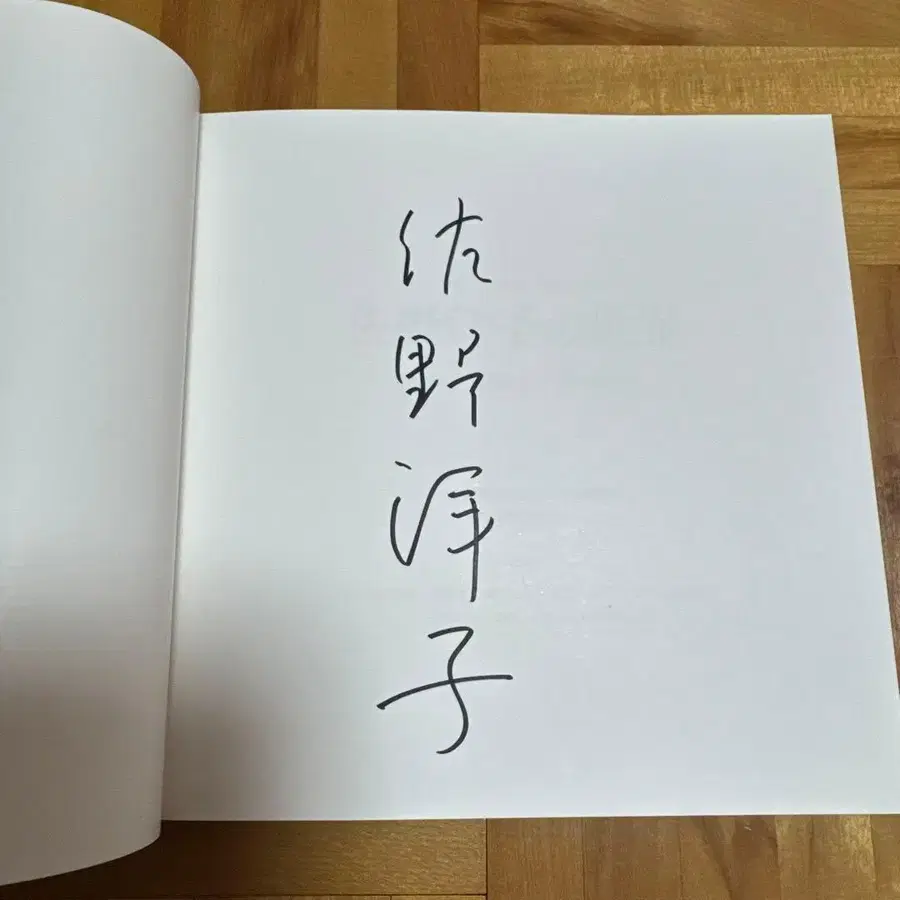 佐野洋子